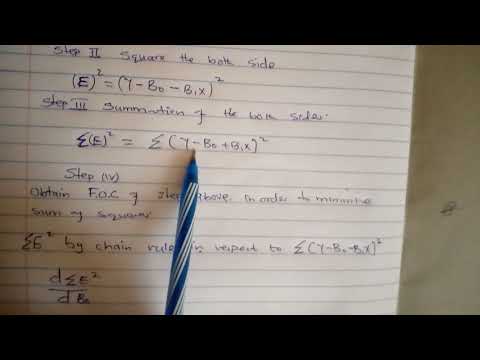 Step II Square the both side
(E)² = (Y - B₀ - B₁X)²
Step III Summation of the both side:
Σ(E)² = Σ(Y - B₀ + B₁X)²
Step (iv)
Obtain F.O.C of above in order to minimize
sum of square
ΣE² by chain rule in respect to Σ(Y-B₀-B₁X)²
dΣE²
dB₀